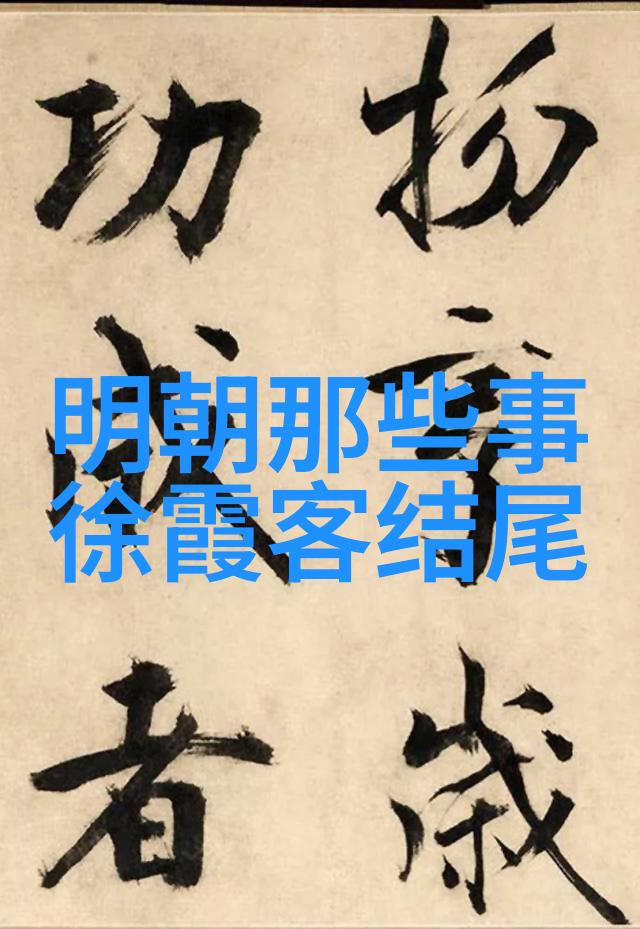 明朝那些事
徐霞客结尾
歲
功成者